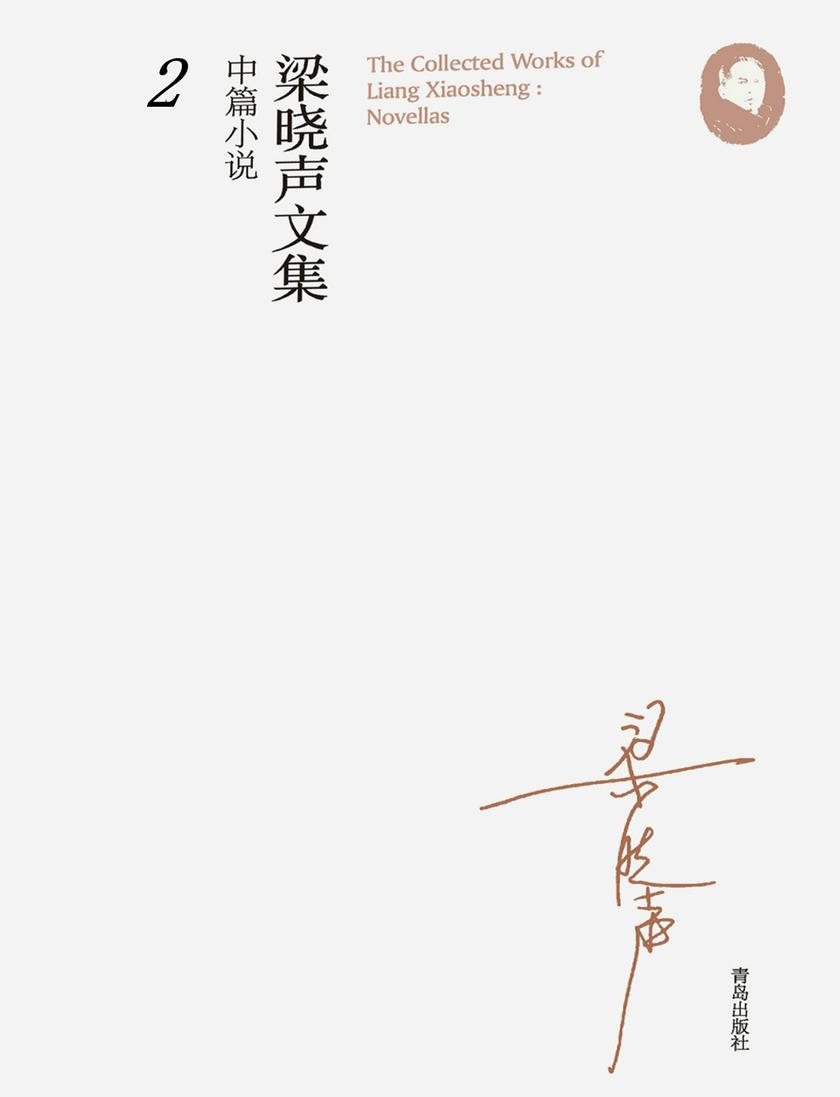 梁晓声文集
中篇小说
2
The Collected Works of
Liang Xiaosheng :
Novellas
梁晓声
青岛出版社